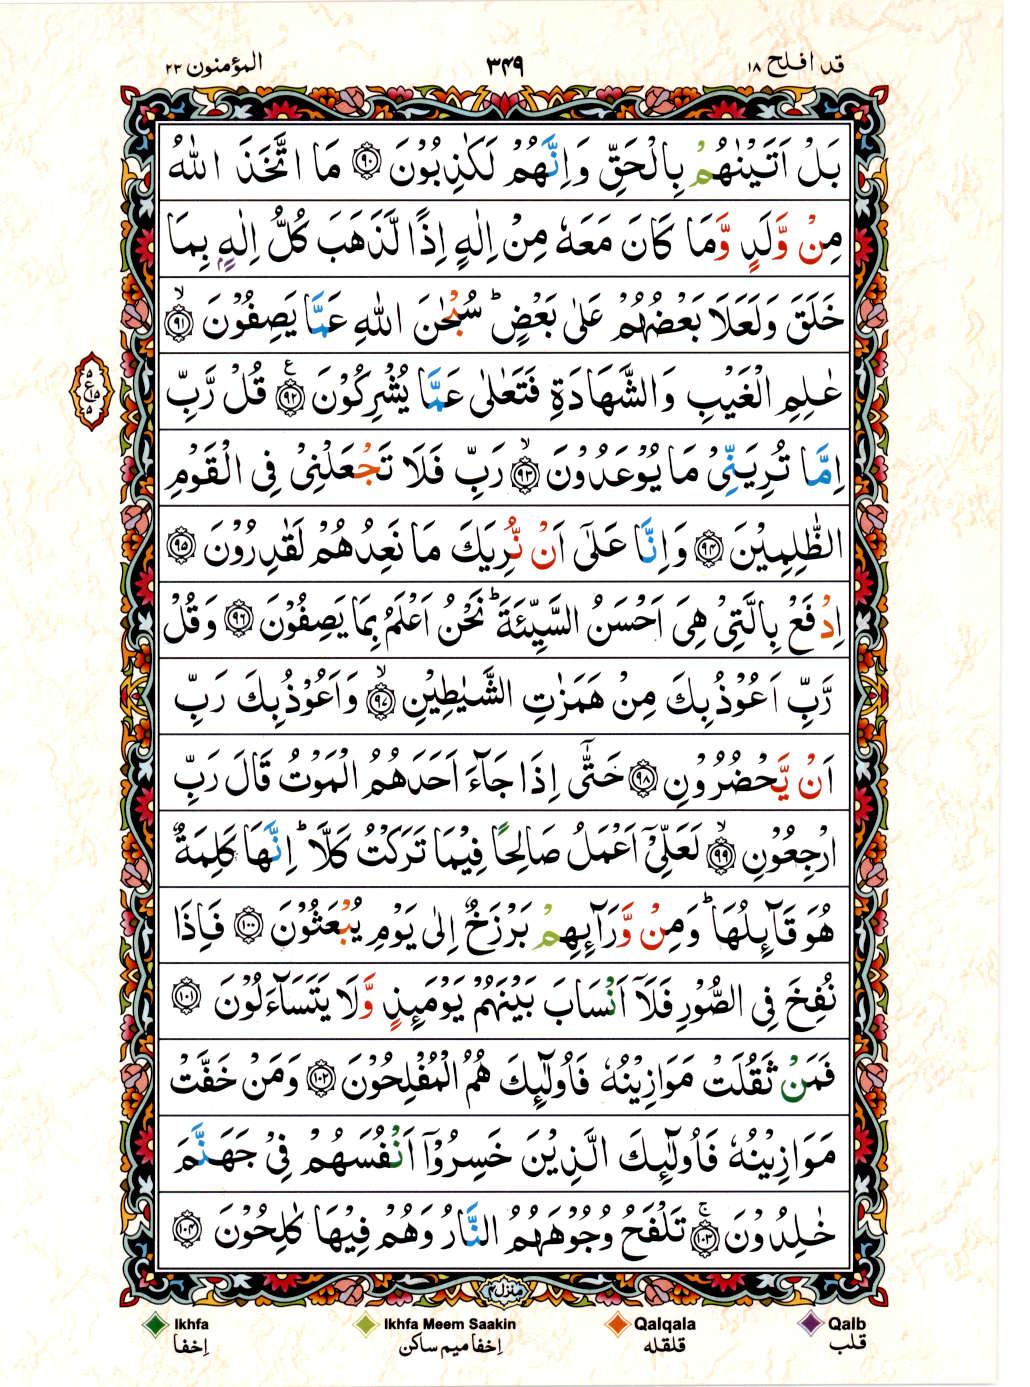 قد افلح ۱۸ ۳۴۹ المؤمنون ۲۳
بَلْ اَتَيْنٰهُمْ بِالْحَقِّ وَاِنَّهُمْ لَكٰذِبُوْنَ ۝۹۰ مَا اتَّخَذَ اللّٰهُ
مِنْ وَّلَدٍ وَّمَا كَانَ مَعَهٗ مِنْ اِلٰهٍ اِذًا لَّذَهَبَ كُلُّ اِلٰهٍۭ بِمَا
خَلَقَ وَلَعَلَا بَعْضُهُمْ عَلٰى بَعْضٍ ؕ سُبْحٰنَ اللّٰهِ عَمَّا يَصِفُوْنَ ۙ۝۹۱
عٰلِمِ الْغَيْبِ وَالشَّهَادَةِ فَتَعٰلٰى عَمَّا يُشْرِكُوْنَ ۝۹۲ ع قُلْ رَّبِّ
۵ ع ۱۵ ۵
اِمَّا تُرِيَنِّيْ مَا يُوْعَدُوْنَ ۙ۝۹۳ رَبِّ فَلَا تَجْعَلْنِيْ فِى الْقَوْمِ
الظّٰلِمِيْنَ ۝۹۴ وَاِنَّا عَلٰٓى اَنْ نُّرِيَكَ مَا نَعِدُهُمْ لَقٰدِرُوْنَ ۝۹۵
اِدْفَعْ بِالَّتِيْ هِيَ اَحْسَنُ السَّيِّئَةَ ؕ نَحْنُ اَعْلَمُ بِمَا يَصِفُوْنَ ۝۹۶ وَقُلْ
رَّبِّ اَعُوْذُ بِكَ مِنْ هَمَزٰتِ الشَّيٰطِيْنِ ۙ۝۹۷ وَاَعُوْذُ بِكَ رَبِّ
اَنْ يَّحْضُرُوْنِ ۝۹۸ حَتّٰٓى اِذَا جَآءَ اَحَدَهُمُ الْمَوْتُ قَالَ رَبِّ
ارْجِعُوْنِ ۙ۝۹۹ لَعَلِّيْٓ اَعْمَلُ صَالِحًا فِيْمَا تَرَكْتُ كَلَّا ؕ اِنَّهَا كَلِمَةٌ
هُوَ قَآئِلُهَا ؕ وَمِنْ وَّرَآئِهِمْ بَرْزَخٌ اِلٰى يَوْمِ يُبْعَثُوْنَ ۝۱۰۰ فَاِذَا
نُفِخَ فِى الصُّوْرِ فَلَآ اَنْسَابَ بَيْنَهُمْ يَوْمَئِذٍ وَّلَا يَتَسَآءَلُوْنَ ۝۱۰۱
فَمَنْ ثَقُلَتْ مَوَازِيْنُهٗ فَاُولٰٓئِكَ هُمُ الْمُفْلِحُوْنَ ۝۱۰۲ وَمَنْ خَفَّتْ
مَوَازِيْنُهٗ فَاُولٰٓئِكَ الَّذِيْنَ خَسِرُوْٓا اَنْفُسَهُمْ فِيْ جَهَنَّمَ
خٰلِدُوْنَ ۚ۝۱۰۳ تَلْفَحُ وُجُوْهَهُمُ النَّارُ وَهُمْ فِيْهَا كٰلِحُوْنَ ۝۱۰۴
منزل ۴
Ikhfa Ikhfa Meem Saakin Qalqala Qalb
إخفا إخفا ميم ساكن قلقله قلب